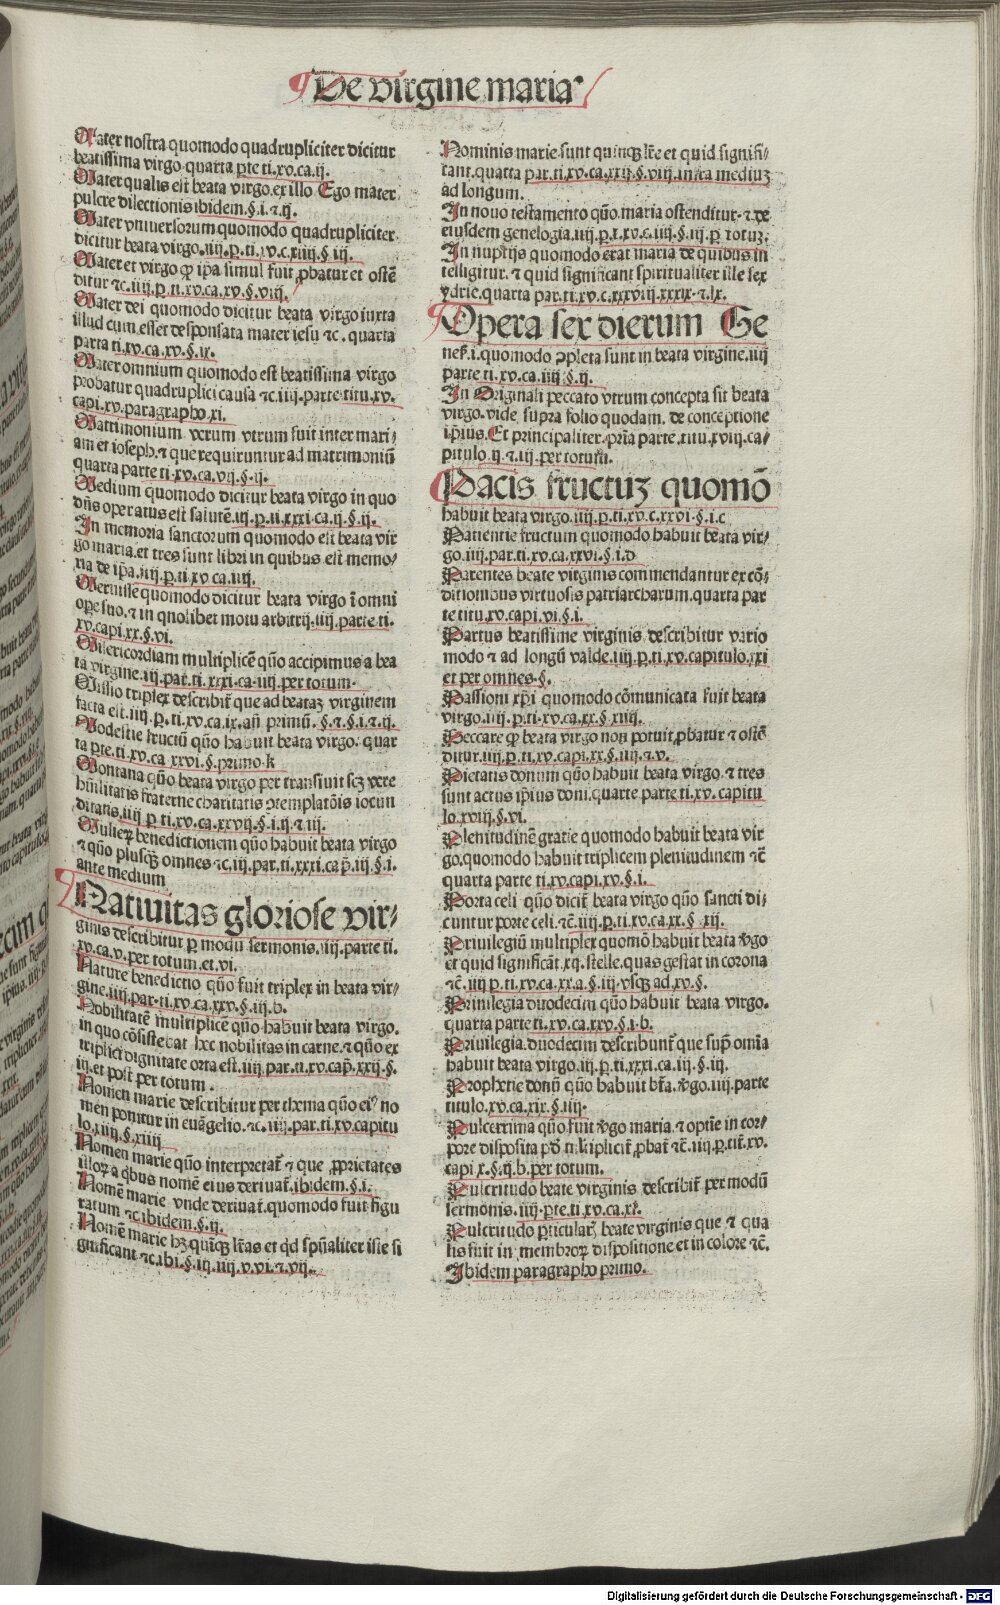 De virgine maria
Mater nostra quomodo quadrupliciter dicitur
beatissima virgo quarta ꝑte ti.xv.ca.ij.
Mater qualis est beata virgo.ex illo Ego mater
pulcre dilectionis ibidem.§.i.⁊.ij.
Mater vniuersorum quomodo quadrupliciter
dicitur beata virgo.iiij.p.ti.xv.c.xiiij.§ iij.
Mater et virgo ꝙ ip̄a simul fuit ꝓbatur et ostē
ditur ⁊c.iiij.p.ti.xv.ca.xv.§.viij.
Mater dei quomodo dicitur beata virgo iuxta
illud cum esset desponsata mater iesu ⁊c.quarta
parta ti.xv.ca.xv.§.ix.
Mater omnium quomodo est beatissima virgo
probatur quadruplici causa ⁊c.iiij.parte titu.xv.
capi.xv.paragrapho.xi.
Matrimonium verum vtrum fuit inter mari/
am et ioseph.⁊ que requiruntur ad matrimoniū
quarta parte ti.xv.ca.vij.§.ij.
Medium quomodo dicitur beata virgo in quo
dn̄s operatus est salutē.iij.p.ti.xxxi.ca.ij.§.ij.
In memoria sanctorum quomodo est beata vir
go maria.et tres sunt libri in quibus est memo/
ria de ip̄a.iiij.p.ti.xv ca.iiij.
Meruisse quomodo dicitur beata virgo ī omni
oꝑe suo.⁊ in quolibet motu arbitrij.iiij.parte ti.
xv.capi.xx.§.vi.
Misericordiam multiplicē qūo accipimus a bea
ta virgine.iij.par.ti.xxxi.ca.iiij.per totum.
Missio triplex describit᷑ que ad beataꝫ virginem
facta est.iiij.p.ti.xv.ca.ix.añ primū.§.⁊.§.i.⁊.ij.
Modestie fructū qūo habuit beata virgo.quar
ta ꝑte.ti.xv.ca xxvi.§.primo.k
Montana qūo beata virgo per transiuit scꝫ vere
hūilitatis fraterne charitatis ꝯtemplatōis iocun
ditatis.iiij p ti.xv.ca.xxvij.§.i.ij.⁊ iij.
Mulieꝝ benedictionem qūo habuit beata virgo
⁊ qūo plusqꝫ omnes ⁊c.iij.par.ti.xxxi.cap̄.iij.§.i.
ante medium
Natiuitas gloriose vir/
ginis describitur ꝑ modū sermonis.iiij.parte ti.
xv.ca.v.per totum.et.vi.
Nature benedictio qūo fuit triplex in beata vir/
gine.iiij.par.ti.xv.ca.xxv.§.iij.b.
Nobilitatē multiplicē qūo habuit beata virgo.
in quo cōsistebat hec nobilitas in carne.⁊ qūo ex
triplici dignitate orta est.iiij.par.ti.xv.cap̄.xxij.§.
iij.et post per totum.
Nomen marie describitur per thema qūo ei⁹ no
men ponitur in euāgelio.⁊c.iiij.par.ti.xv.capitu
lo.xiiij.§.xiiij
Nomen marie qūo interpretat᷑ ⁊ que ꝓprietates
illoꝝ a qbus nomē eius deriuat᷑.ibidem.§.i.
Nomē marie vnde deriuat᷑.quomodo fuit figu
ratum ⁊c ibidem.§.ij.
Nomē marie hꝫ quīqꝫ lr̄as et qd sp̄ualiter iste si
gnificant ⁊c.ibi.§.iij.iiij.v.vi.⁊.vij.
Nominis marie sunt quinqꝫ lr̄e et quid signifi/
cant.quarta par.ti.xv.ca.xxij.§.viij.infra mediuꝫ
ad longum.
In nouo testamento qūo.maria ostenditur.⁊ de
eiusdem genelogia.iiij.p.t.xv.c.iiij.§.iij.p totuꝫ.
In nuptijs quomodo erat maria de quibus in
telligitur.⁊ quid significant spiritualiter ille sex
ydrie.quarta par.ti.xv.c.xxxviij.xxxix.⁊.lx.
Opera sex dierum Ge
nes̄.i.quomodo ꝯpleta sunt in beata virgine.iiij
parte ti.xv.ca.iiij.§.ij.
In Originali peccato vtrum concepta sit beata
virgo.vide supra folio quodam.de conceptione
ip̄ius.Et principaliter.pria parte.titu.xviij.ca/
pitulo.ij.⁊.iij.per totum.
Pacis fructuꝫ quomō
habuit beata virgo.iiij.p.ti.xv.c.xxvi.§.i.c
Patientie fructum quomodo habuit beata vir/
go.iiij.par.ti.xv.ca.xxvi.§.i.d
Parentes beate virginis commendantur ex cō/
ditionibus virtuosis patriarcharum.quarta par
te titu.xv.capi.vi.§.i.
Partus beatissime virginis describitur vario
modo ⁊ ad longū valde.iiij.p.ti.xv.capitulo.xxi
et per omnes.§.
Passioni xp̄i quomodo cōmunicata fuit beata
virgo.iiij.p.ti.xv.ca.xx.§.xiiij.
Peccare ꝙ beata virgo non potuit.ꝓbatur ⁊ ostē
ditur.iiij.p.ti.xv.capi.xx.§.iiij.⁊.v.
Pietatis donum qūo habuit beata virgo.⁊ tres
sunt actus ip̄ius doni.quarte parte.ti.xv.capitu
lo.xviij.§.vi.
Plenitudinē gratie quomodo habuit beata vir
go.quomodo habuit triplicem plenitudinem ⁊c̄
quarta parte ti.xv.capi.xv.§.i.
Porta celi qūo dicit᷑ beata virgo qūo sancti di/
cuntur porte celi.⁊c̄.iiij.p.ti.xv.ca.xx.§.xij.
Priuilegiū multiplex quomō habuit beata v̄go
et quid significāt.xij.stelle.quas gestat in corona
⁊c̄.iiij p.ti.xv.ca.xx.a.§.iij.vsqꝫ ad.xv.§.
Priuilegia duodecim qūo habuit beata virgo.
quarta parte ti.xv.ca.xxv.§.i.b.
Priuilegia.duodecim describunt᷑ que sup̄ om̄ia
habuit beata virgo.iij.p.ti.xxxi.ca.iij.§.iij.
Prophetie donū qūo habuit bt̄a.v̄go.iiij.parte
titulo.xv.ca.xix.§.iiij.
Pulcerrima qūo.fuit v̄go maria.⁊ optie in cor/
pore disposita
capi x.§.ij.b.per totum.
Pulcritudo beate virginis describit᷑ per modū
sermonis.iiij.ꝑte.ti.xv.ca.xi.
Pulcritudo ꝑticularꝭ beate virginis que ⁊ qua
lis fuit in membroꝝ dispositione et in colore ⁊c̄.
Ibidem paragrapho primo.
Digitalisierung gefördert durch die Deutsche Forschungsgemeinschaft - DFG